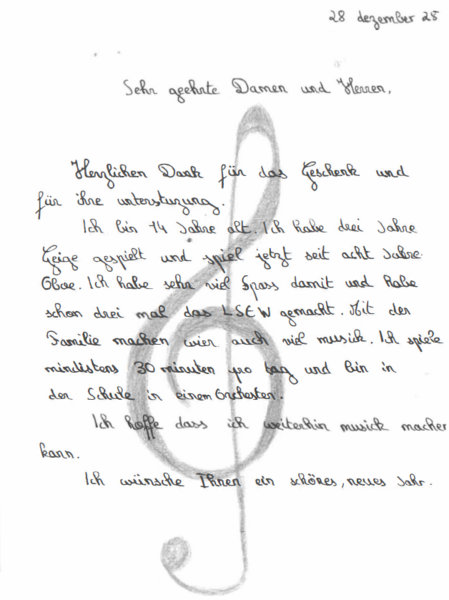 28 dezember 25
Sehr geehrte Damen und Herren,
Herzlichen Dank für das Geschenk und
für ihre unterstuzung.
Ich bin 14 Jahre alt. Ich habe drei Jahre
Geige gespielt und spiel jetzt seit acht Jahre
Oboe. Ich habe sehr viel Spass damit und habe
schon drei mal das LSEW gemacht. Mit der
Familie machen wier auch viel musik. Ich spiele
mindistens 30 minuten pro tag und bin in
der Schule in einem Orchester.
Ich hoffe dass ich weiterhin musick machen
kann.
Ich wünsche Ihnen ein schönes, neues Jahr.